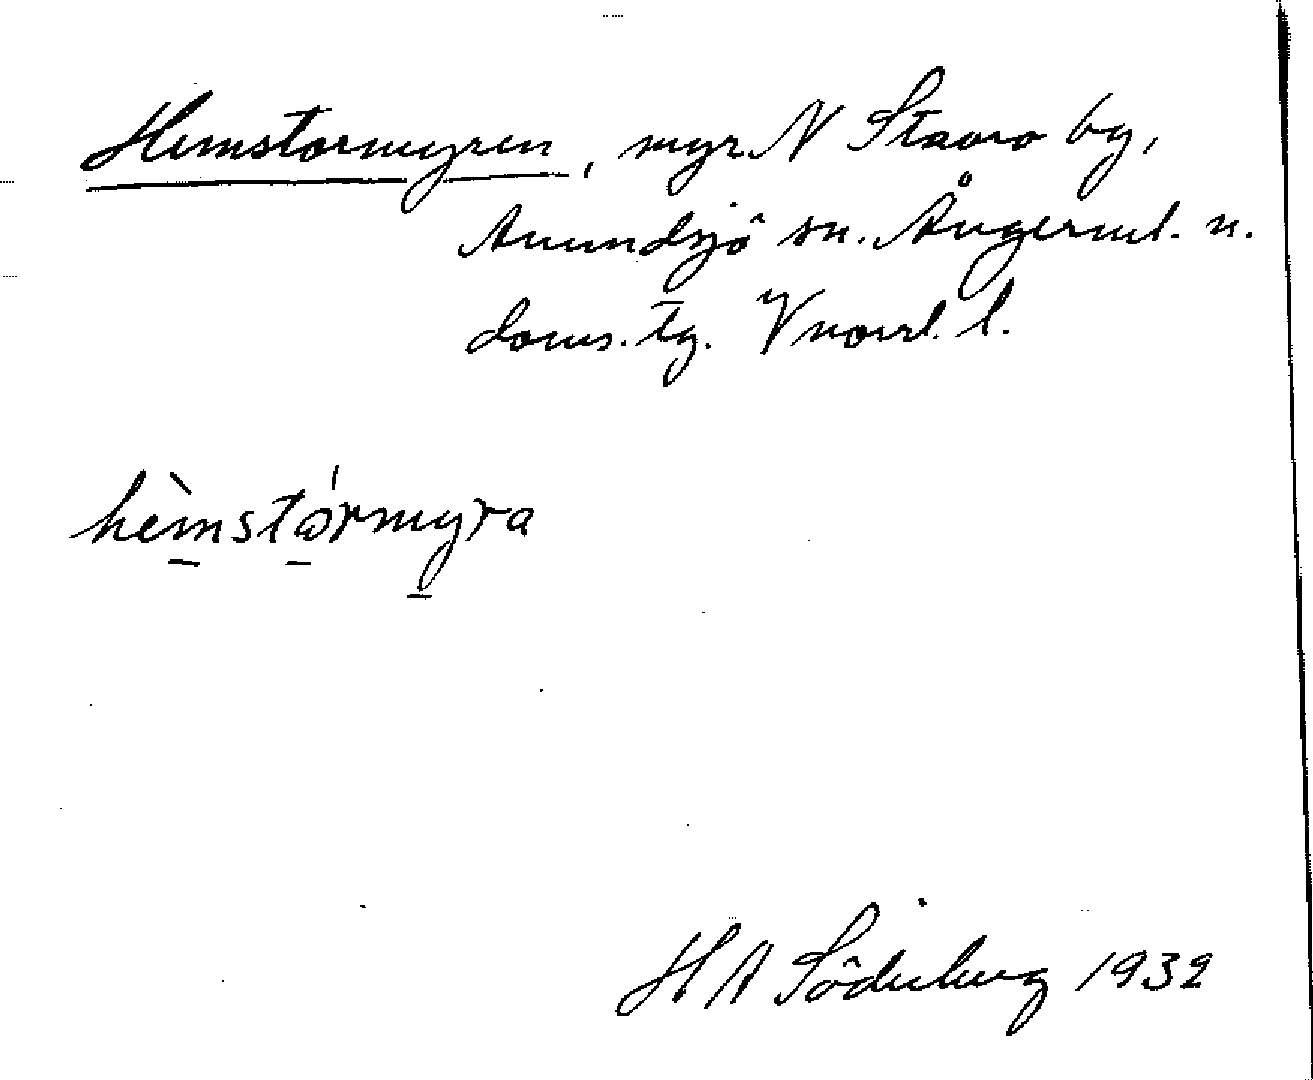 Hemstormyren, myr N Stavro by,
Anundsjö sn. Ångerml. n.
doms. tg. Vnorrl. l.
hèmstórmyra
H A Söderberg 1932